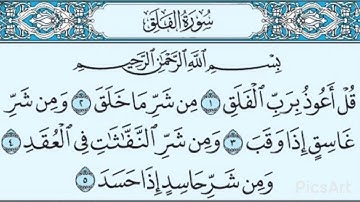 سُورَةُ الفَلَقِ
بِسْمِ اللَّهِ الرَّحْمَٰنِ الرَّحِيمِ
قُلْ أَعُوذُ بِرَبِّ الْفَلَقِ ١ مِن شَرِّ مَا خَلَقَ ٢ وَمِن شَرِّ
غَاسِقٍ إِذَا وَقَبَ ٣ وَمِن شَرِّ النَّفَّاثَاتِ فِي الْعُقَدِ ٤
وَمِن شَرِّ حَاسِدٍ إِذَا حَسَدَ ٥
PicsArt